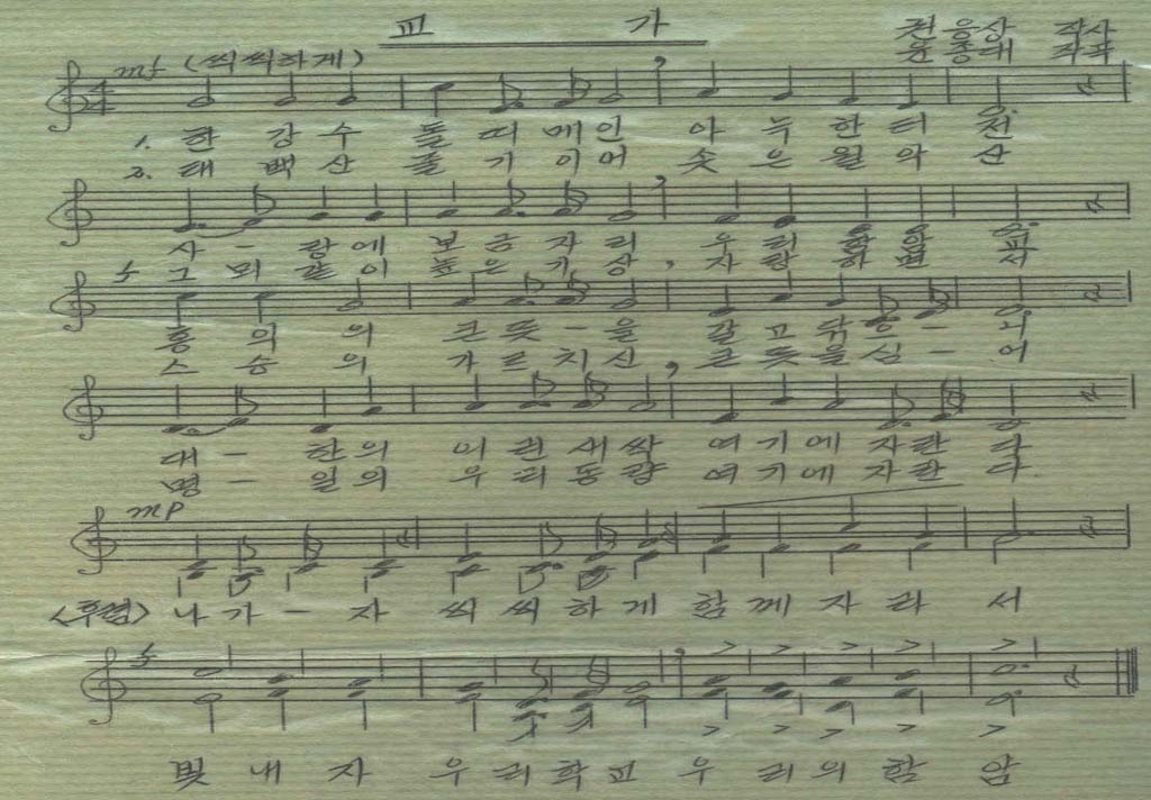 교 가
전응상 작사
윤종대 작곡
mf (씩씩하게)
1. 한 강 수 돌 떠 메 인 아 늑 한 터 전
2. 태 백 산 줄 기 이 어 솟 은 월 악 산
사 - 랑 에 보 금 자 리 우 리
그 뫼 같 이 높 은 기 상, 자 랑 하 면 서
f
의 의 큰 뜻 - 을 갈 고 닦 으 - 니
스 승 의 가 르 치 신, 큰 뜻 을 심 - 어
대 - 한 의 어 린 새 싹 여 기 에 자 란 다
명 - 일 의 우 리 동 량 여 기 에 자 란 다.
mp
<후렴> 나 가 - 자 씩 씩 하 게 함 께 자 라 서
f
빛 내 자 우 리 학 교 우 리 의 함 암